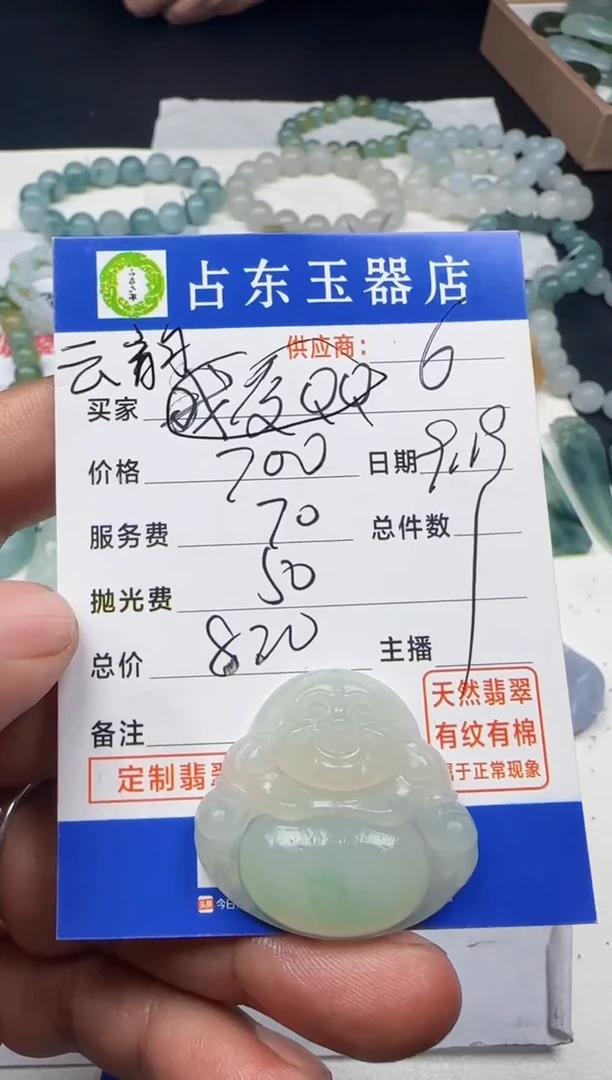 占东玉器店
供应商： 6
云南
买家 我爱QQ
价格 700 日期 9.19
服务费 70 总件数 1
抛光费 50
总价 820 主播
备注
天然翡翠
有纹有棉
属于正常现象
定制翡翠
头条 今日